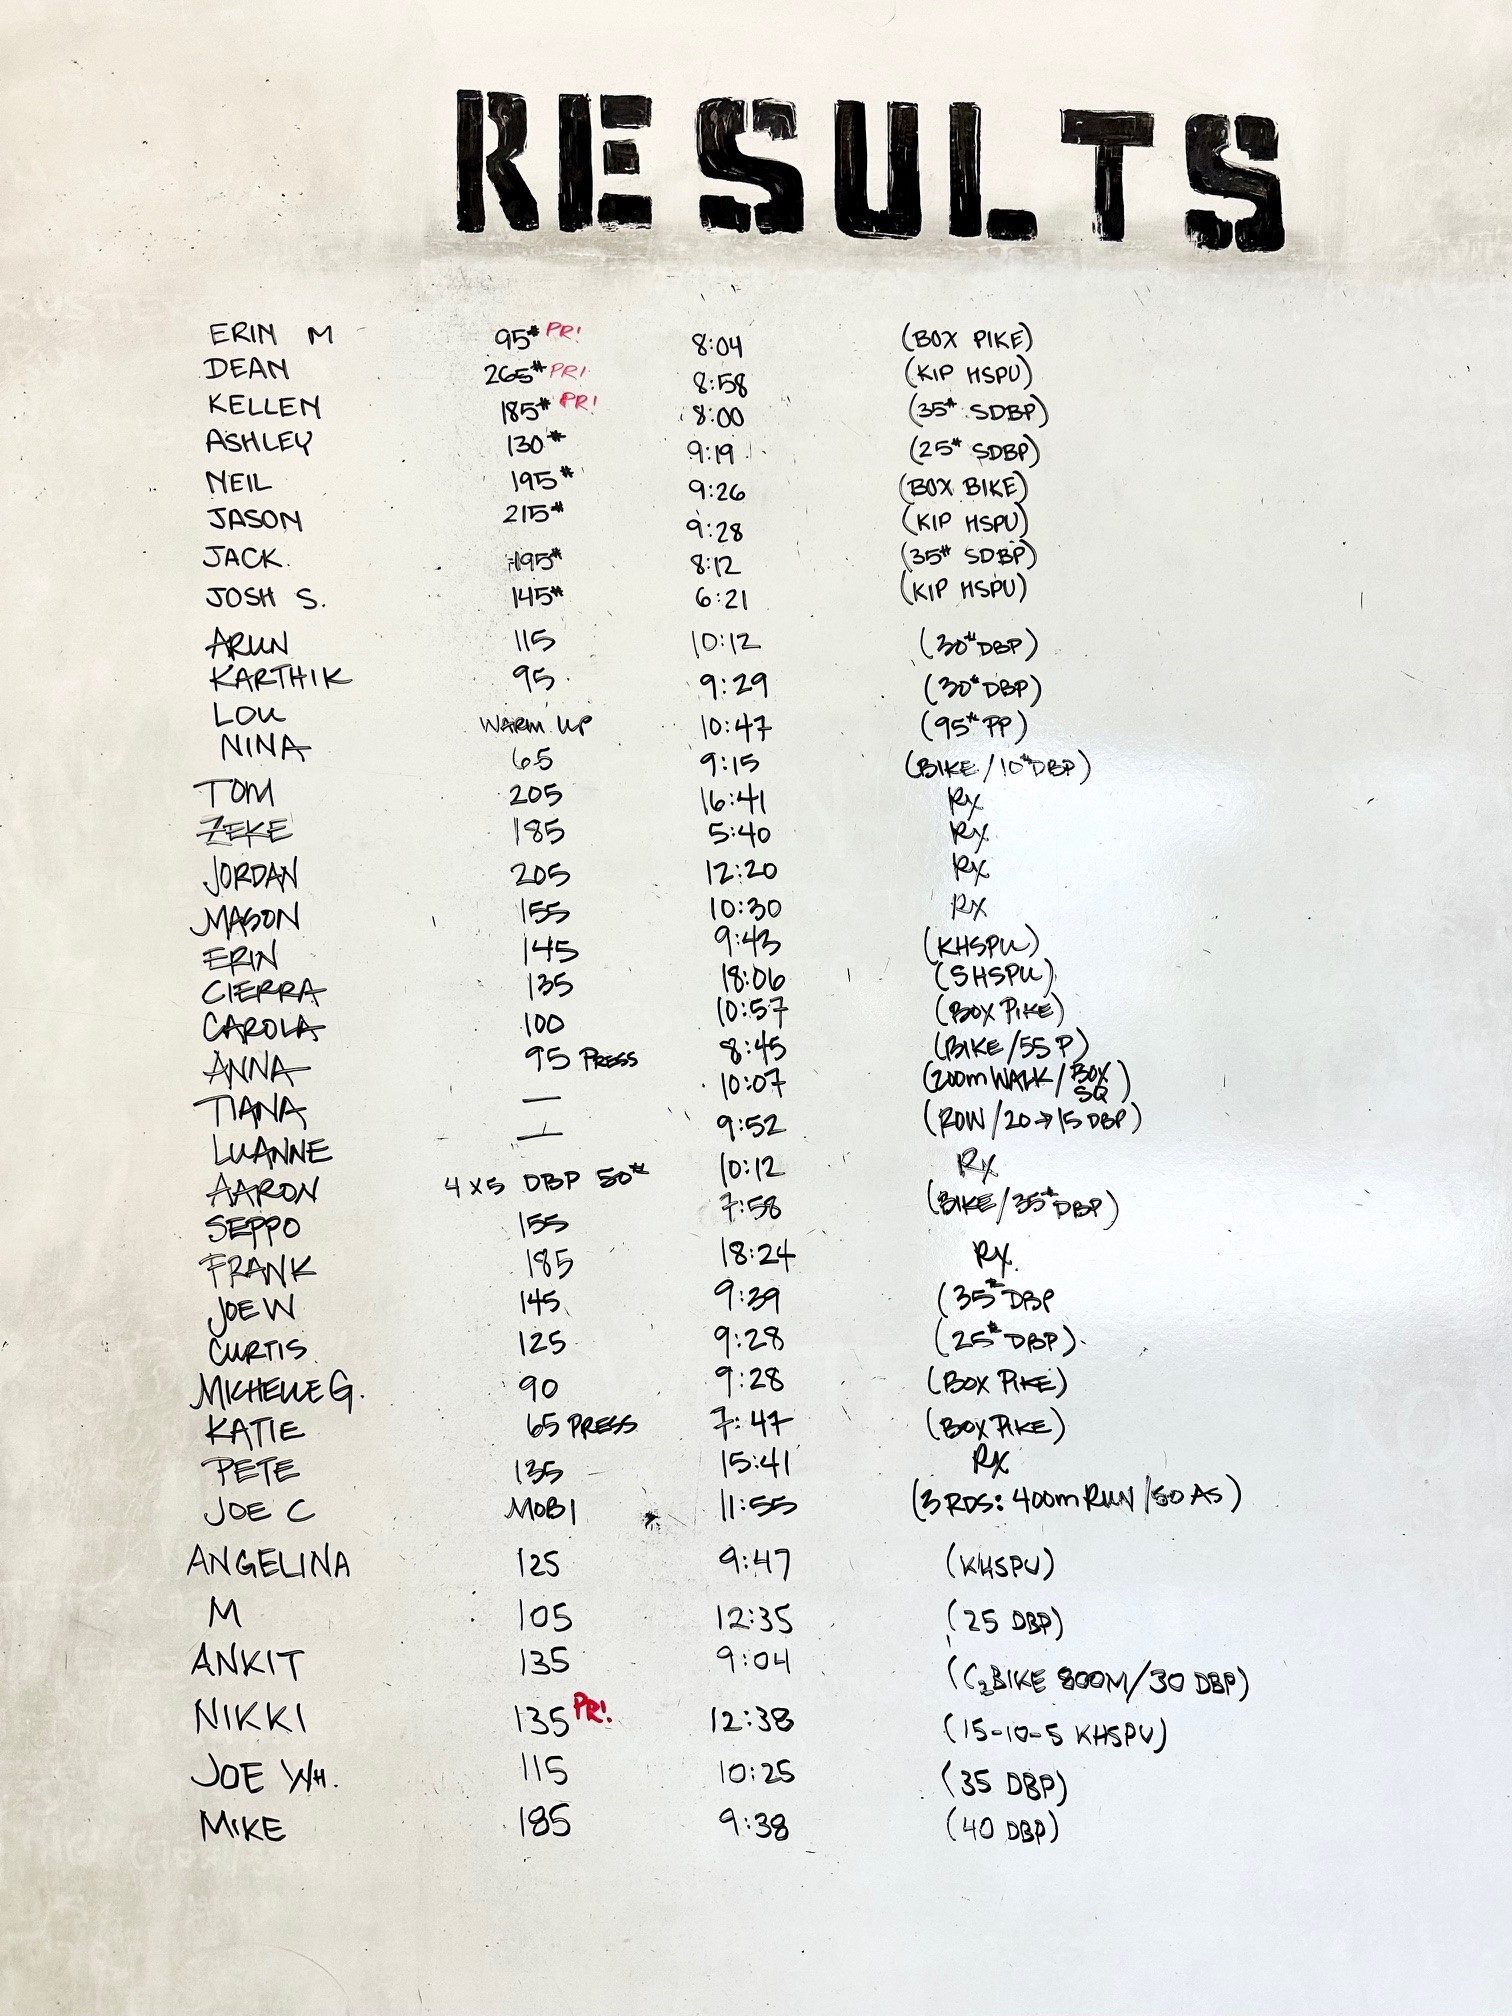 RESULTS
ERIN M 95# PR! 8:04 (BOX PIKE)
DEAN 265# PR! 8:58 (KIP HSPU)
KELLEN 185# PR! 8:00 (35# SDBP)
ASHLEY 130# 9:19 (25# SDBP)
NEIL 195# 9:26 (BOX BIKE)
JASON 215# 9:28 (KIP HSPU)
JACK 195# 8:12 (35# SDBP)
JOSH S. 145# 6:21 (KIP HSPU)
ARUN 115 10:12 (30# DBP)
KARTHIK 95 9:29 (30# DBP)
LOU WARM UP 10:47 (95# PP)
NINA 65 9:15 (BIKE/10# DBP)
TOM 205 16:41 Rx
ZEKE 185 5:40 Rx
JORDAN 205 12:20 Rx
MASON 155 10:30 Rx
ERIN 145 9:43 (KHSPU)
CIERRA 135 18:06 (SHSPU)
CAROLA 100 10:57 (BOX PIKE)
ANNA 95 PRESS 8:45 (BIKE/55 P)
TIANA — 10:07 (200m WALK/BOX SQ)
LUANNE — 9:52 (ROW/20→15 DBP)
AARON 4x5 DBP 50# 10:12 Rx
SEPPO 155 7:58 (BIKE/35# DBP)
FRANK 185 18:24 Rx
JOE W 145 9:39 (35# DBP
CURTIS 125 9:28 (25# DBP)
MICHELLE G. 90 9:28 (BOX PIKE)
KATIE 65 PRESS 7:47 (BOX PIKE)
PETE 135 15:41 Rx
JOE C MOBI 11:55 (3 RDS: 400m RUN/50 AS)
ANGELINA 125 9:47 (KHSPU)
M 105 12:35 (25 DBP)
ANKIT 135 9:04 (C2 BIKE 800M/30 DBP)
NIKKI 135 PR! 12:38 (15-10-5 KHSPU)
JOE WH. 115 10:25 (35 DBP)
MIKE 185 9:38 (40 DBP)